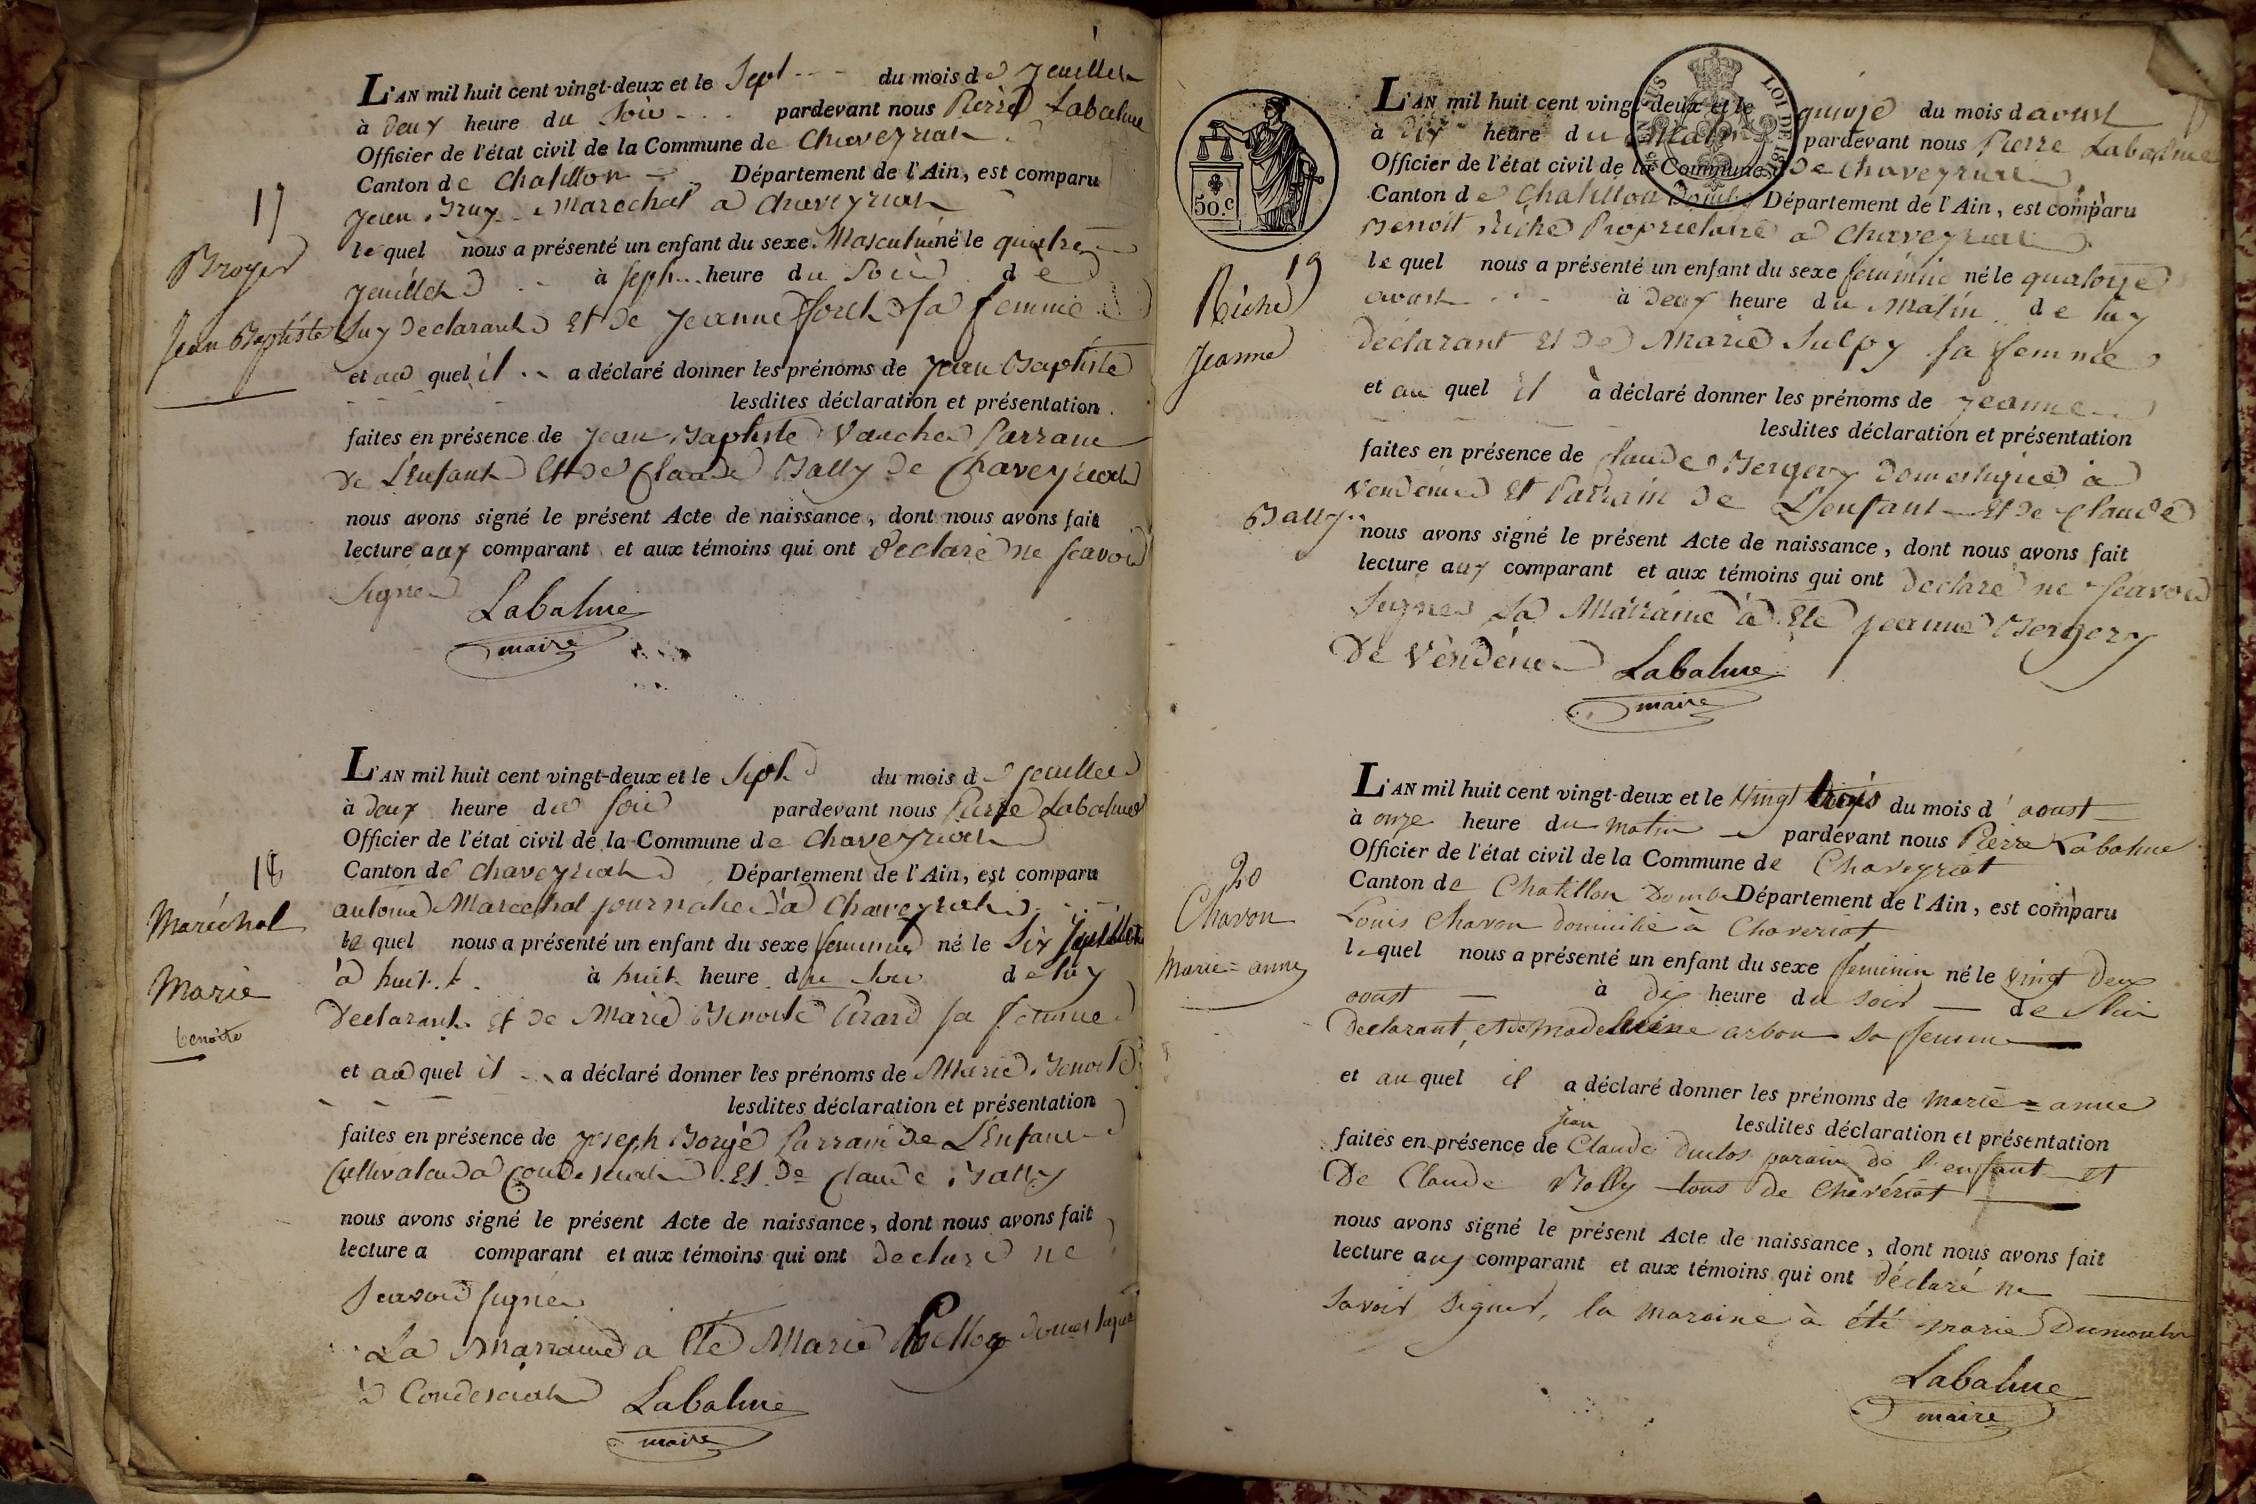 L'AN mil huit cent vingt-deux et le Sept du mois de Jeuillet
à deux heure du Soir pardevant nous Pierre Labalme
Officier de l'état civil de la Commune de Chaveyriat
Canton de Chatillon Département de l'Ain, est comparu
Marechal à Chaveyriat
17
le quel nous a présenté un enfant du sexe Masculin né le quatre
Broyer
Jeuillet à sept heure du Soir de
Jean Baptiste
Luy declarant Et de Jeanne foret sa femme
et au quel il a déclaré donner les prénoms de Jean Baptiste
lesdites déclaration et présentation
faites en présence de Jean Baptiste Vaucher Parrain
de L'Enfant Et de Claude Bally de Chaveyriat
nous avons signé le présent Acte de naissance, dont nous avons fait
lecture aux comparant et aux témoins qui ont declaré ne scavoir
Signer
Labalme
maire
L'AN mil huit cent vingt-deux et le Sept du mois de Jeuillet
à deux heure du soir pardevant nous Pierre Labalme
Officier de l'état civil de la Commune de Chaveyriat
Canton de Chaveyriat Département de l'Ain, est comparu
18
antoine Marechal journalier à Chaveyriat
Maréchal
le quel nous a présenté un enfant du sexe feminin né le Six Jeuillet
Marie
à huit à huit heure du soir de luy
benoite
Declarant Et de Marie Benoite Pirard sa femme
et au quel il a déclaré donner les prénoms de Marie Benoite
lesdites déclaration et présentation
faites en présence de Joseph Borge Parrain de L'Enfant
Cultivateur à Condesciat Et de Claude Bally
nous avons signé le présent Acte de naissance, dont nous avons fait
lecture a comparant et aux témoins qui ont declaré ne
Scavoir signer
La Marraine a Eté Marie domestique
à Condesciat
Labalme
maire
EN SUS LOI DE
50.c
L'AN mil huit cent vingt-deux et le quinze du mois d aoust
à dix heure du Matin pardevant nous Pierre Labalme
Officier de l'état civil de la Commune de Chaveyriat
Canton de Chatillon Dombe Département de l'Ain, est comparu
Benoit Riche Proprietaire à Chaveyriat
19
le quel nous a présenté un enfant du sexe feminin né le quatorze
Riche
aoust à deux heure du Matin de luy
Jeanne
déclarant Et de Marie Sulpy sa femme
et au quel il à déclaré donner les prénoms de Jeanne
lesdites déclaration et présentation
faites en présence de Claude Bergery domestique à
Vendeins Et Parrain de L'enfant Et de Claude
Bally
nous avons signé le présent Acte de naissance, dont nous avons fait
lecture aux comparant et aux témoins qui ont declaré ne scavoir
Signer La Marraine à Eté Jeanne Bergery
de Vendeins
Labalme
maire
L'AN mil huit cent vingt-deux et le Vingt trois du mois d' aoust
à onze heure du matin pardevant nous Pierre Labalme
Officier de l'état civil de la Commune de Chaveyriat
20
Canton de Chatillon Dombe Département de l'Ain, est comparu
Chavon
Louis Chavon domicilié à Chaveriat
Marie = anne
le quel nous a présenté un enfant du sexe feminin né le vingt deux
aoust à dix heure du soir de lui
declarant, et de Madeleine arbon sa femme
et au quel il a déclaré donner les prénoms de Marie = anne
lesdites déclaration et présentation
Jean
faites en présence de Claude Duclos parain de l'enfant et
De Claude Bolly tous de Chaveriat
nous avons signé le présent Acte de naissance, dont nous avons fait
lecture aux comparant et aux témoins qui ont déclaré ne
savoir signer, la maraine à été marie Dumoulin
Labalme
maire